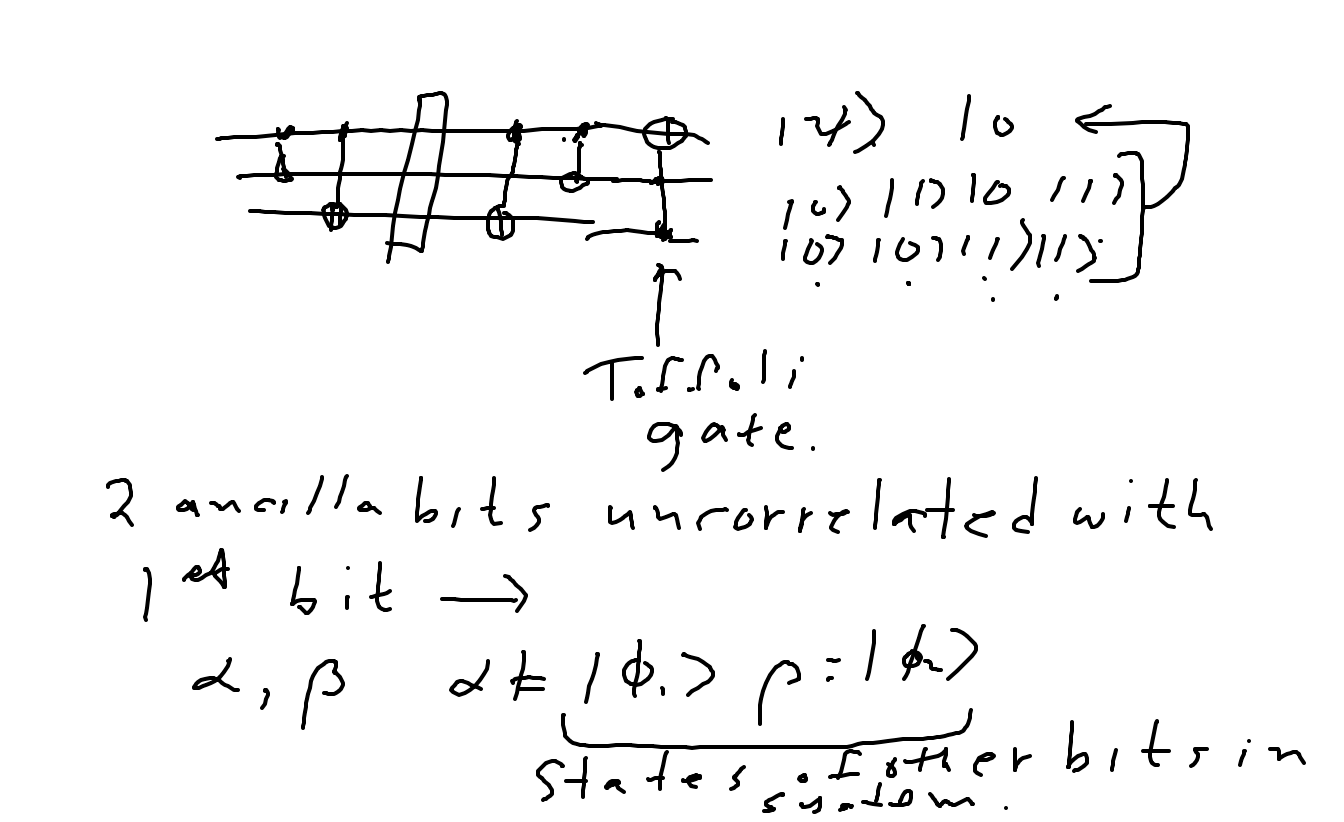 |ψ⟩ |0
|0⟩ |1⟩ |0 |1⟩
|0⟩ |0⟩ |1⟩ |1⟩
Toffoli
gate.
2 ancilla bits uncorrelated with
1st bit →
α, β α = |ϕ₁⟩ β = |ϕ₂⟩
states of other bits in
system.